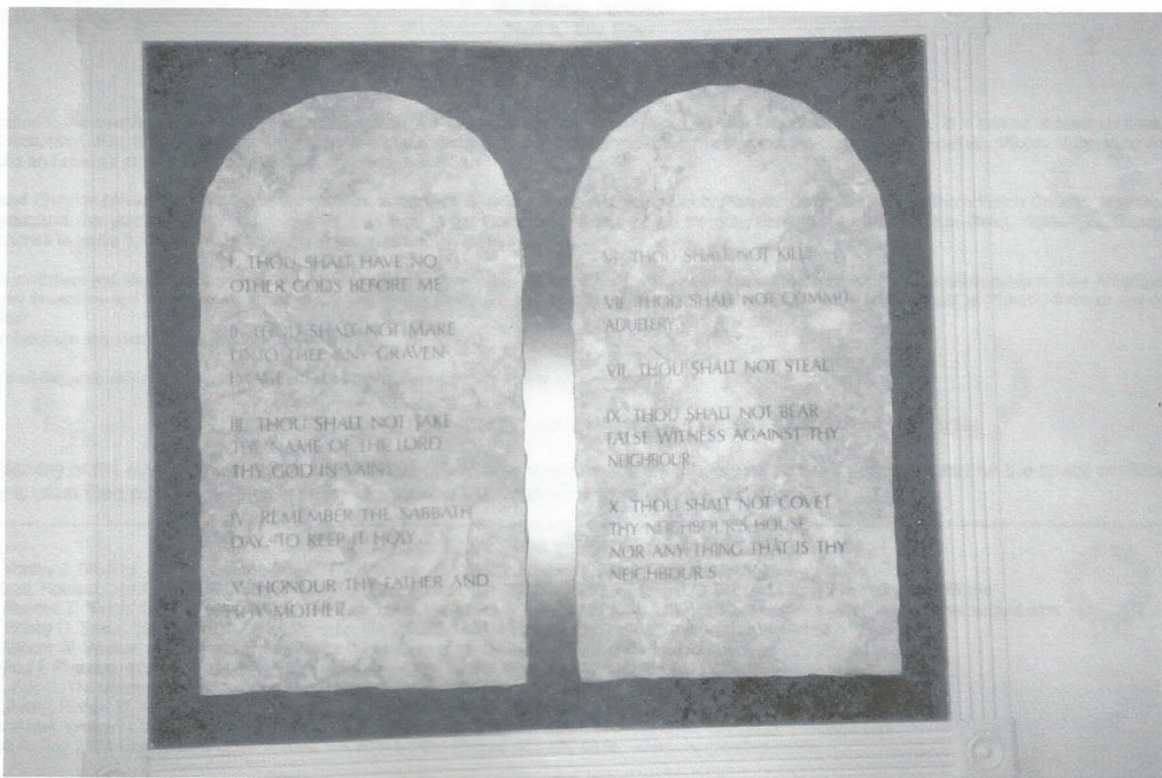 I. THOU SHALT HAVE NO
OTHER GODS BEFORE ME
II. THOU SHALT NOT MAKE
UNTO THEE ANY GRAVEN
IMAGE
III. THOU SHALT NOT TAKE
THE NAME OF THE LORD
THY GOD IN VAIN.
IV. REMEMBER THE SABBATH
DAY, TO KEEP IT HOLY.
V. HONOUR THY FATHER AND
THY MOTHER.
VI. THOU SHALT NOT KILL.
VII. THOU SHALT NOT COMMIT
ADULTERY.
VII. THOU SHALT NOT STEAL.
IX. THOU SHALT NOT BEAR
FALSE WITNESS AGAINST THY
NEIGHBOUR.
X. THOU SHALT NOT COVET
THY NEIGHBOUR'S HOUSE
NOR ANY THING THAT IS THY
NEIGHBOUR'S